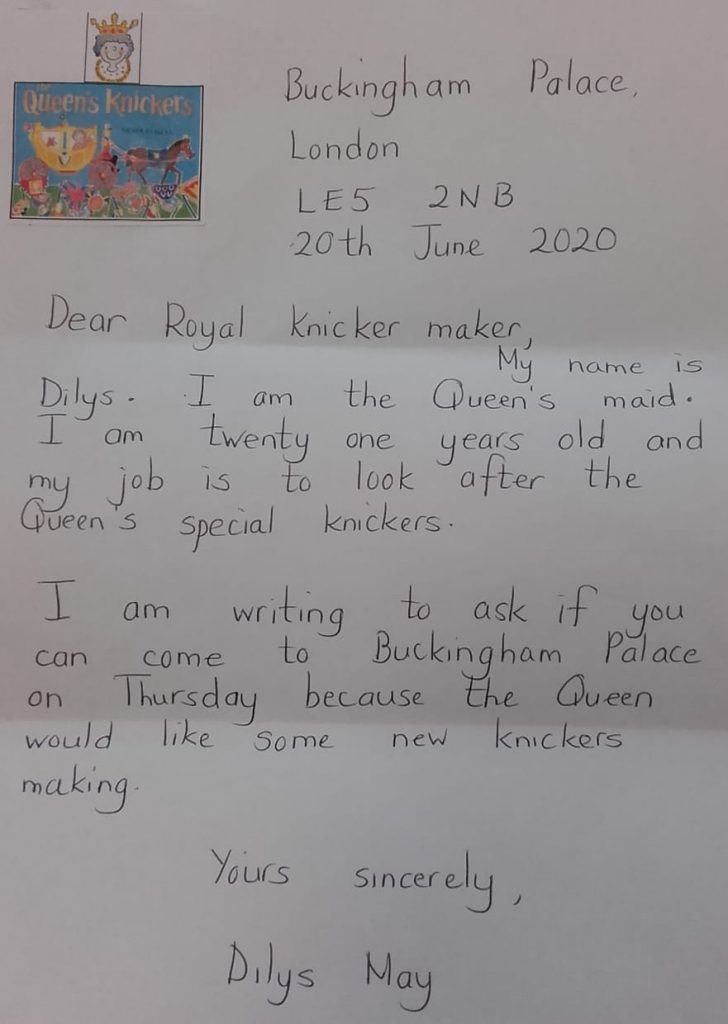 the
Queen's Knickers
Buckingham Palace,
London
LE5 2NB
20th June 2020
Dear Royal Knicker maker,
My name is
Dilys. I am the Queen's maid.
I am twenty one years old and
my job is to look after the
Queen's special knickers.
I am writing to ask if you
can come to Buckingham Palace
on Thursday because the Queen
would like some new knickers
making.
Yours sincerely,
Dilys May